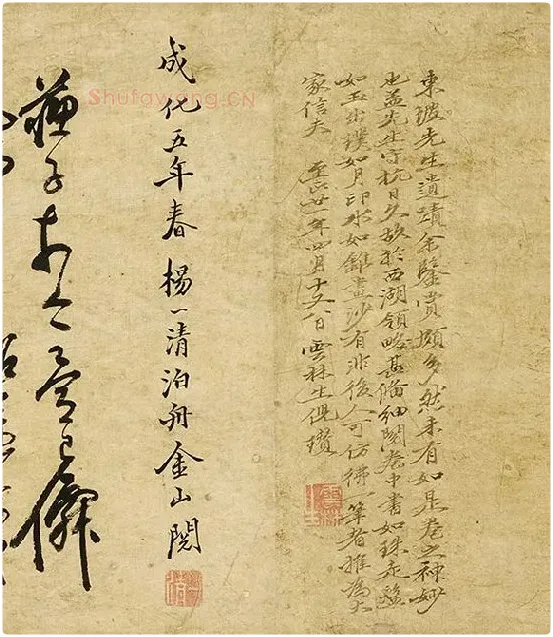 東坡先生遺蹟余鑒賞頗多然未有如是卷之神妙
也蓋先生守杭日久故於西湖領略甚備細閱卷中書如珠走盤
如玉出璞如月印水如錐畫沙有非後人可仿彿一筆者推為大
家信夫 至正廿一年四月十五日雲林生倪瓚
成化五年春楊一清泊舟金山閱
蘇子
Shufawang.CN